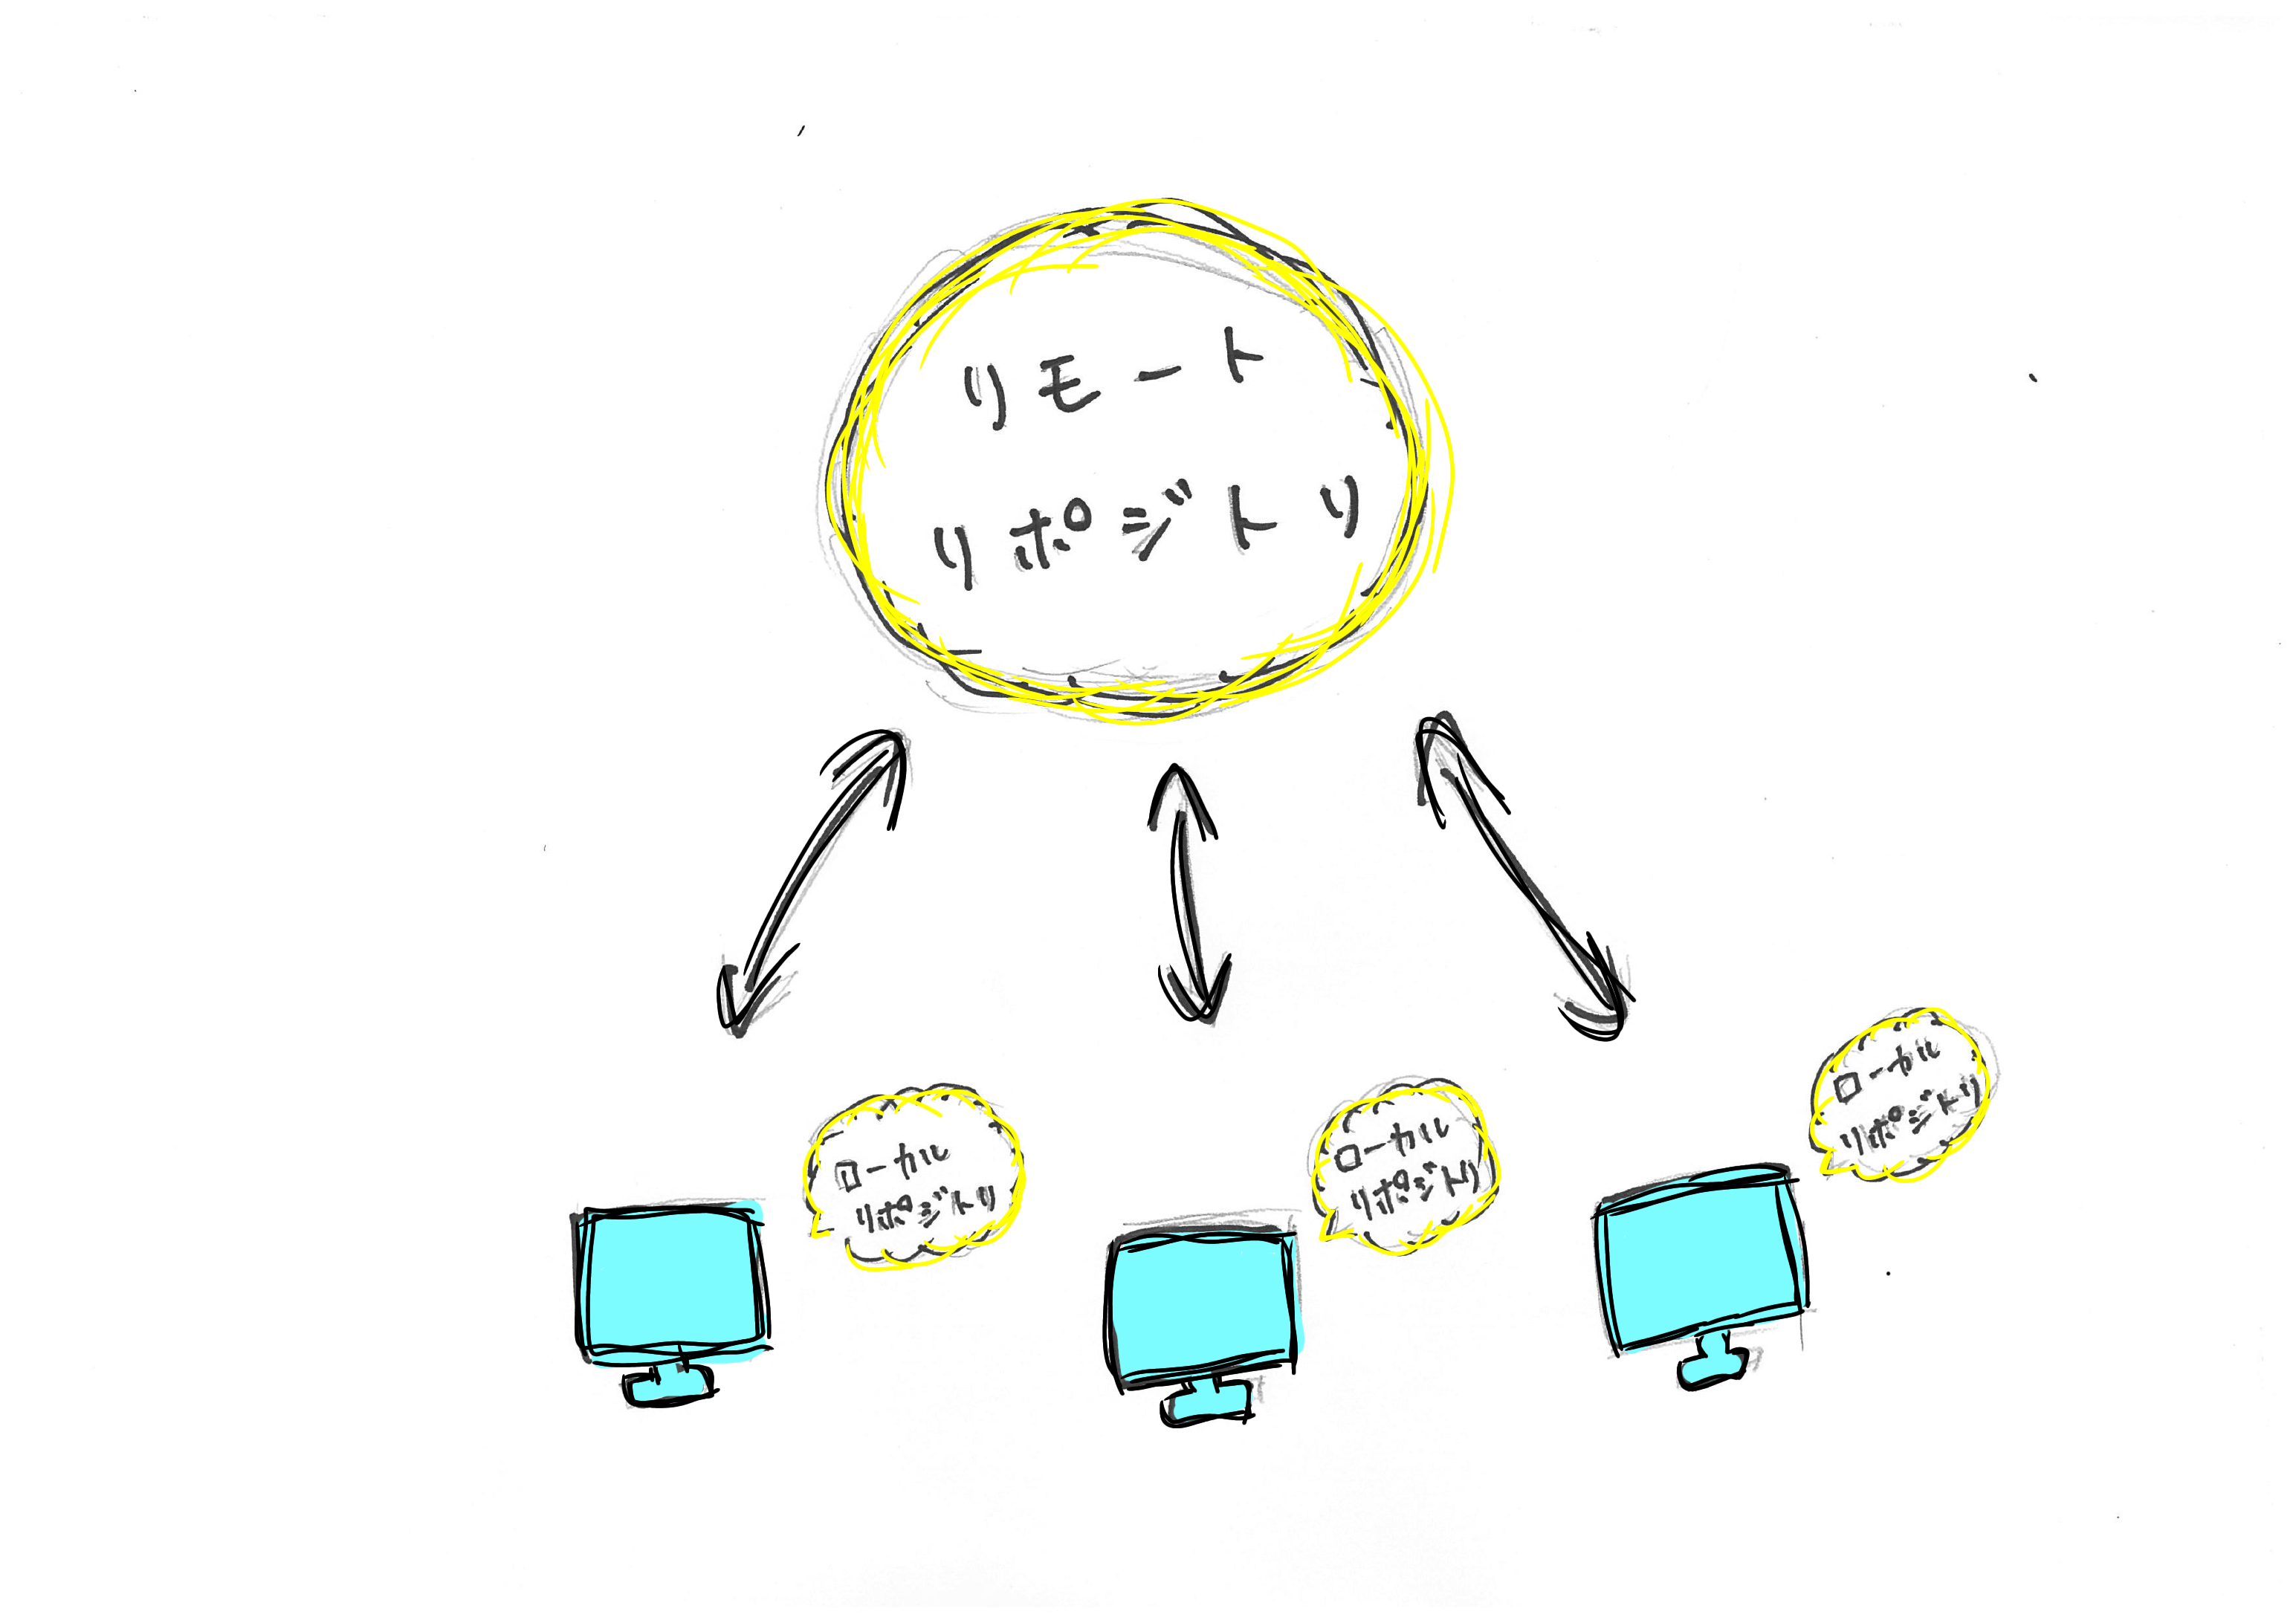 リモート
リポジトリ
ローカル
リポジトリ
ローカル
リポジトリ
ローカル
リポジトリ